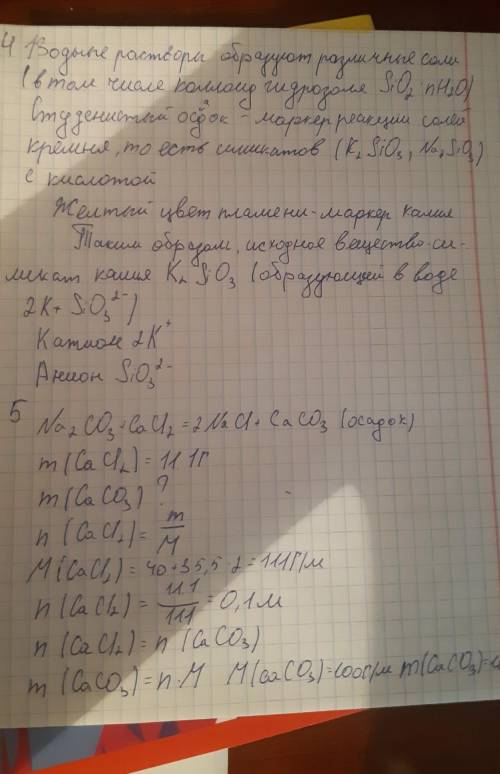 4 Водные растворы образуют различные соли
(в том числе коллоид гидрозоля SiO2 nH2O)
Студенистый осадок - маркер реакции солей
кремния, то есть силикатов (K2SiO3, Na2SiO3)
с кислотой
Желтый цвет пламени - маркер калия
Таким образом, исходное вещество - си-
ликат калия K2SiO3 (образующей в воде
2K + SiO3 2-)
Катион 2K+
Анион SiO3 2-
5 Na2CO3 + CaCl2 = 2NaCl + CaCO3 (осадок)
m (CaCl2) = 11.1г
m (CaCO3) ?
n (CaCl2) = m/M
M (CaCl2) = 40 + 35,5 · 2 = 111г/м
n (CaCl2) = 11.1/111 = 0,1м
n (CaCl2) = n (CaCO3)
m (CaCO3) = n · M M (CaCO3) = 100г/м m (CaCO3) =